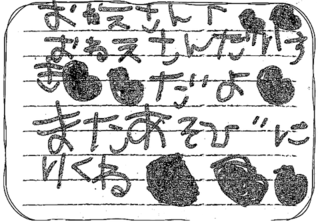 おねえさんだいす
き だよ
またあそびに
いくね